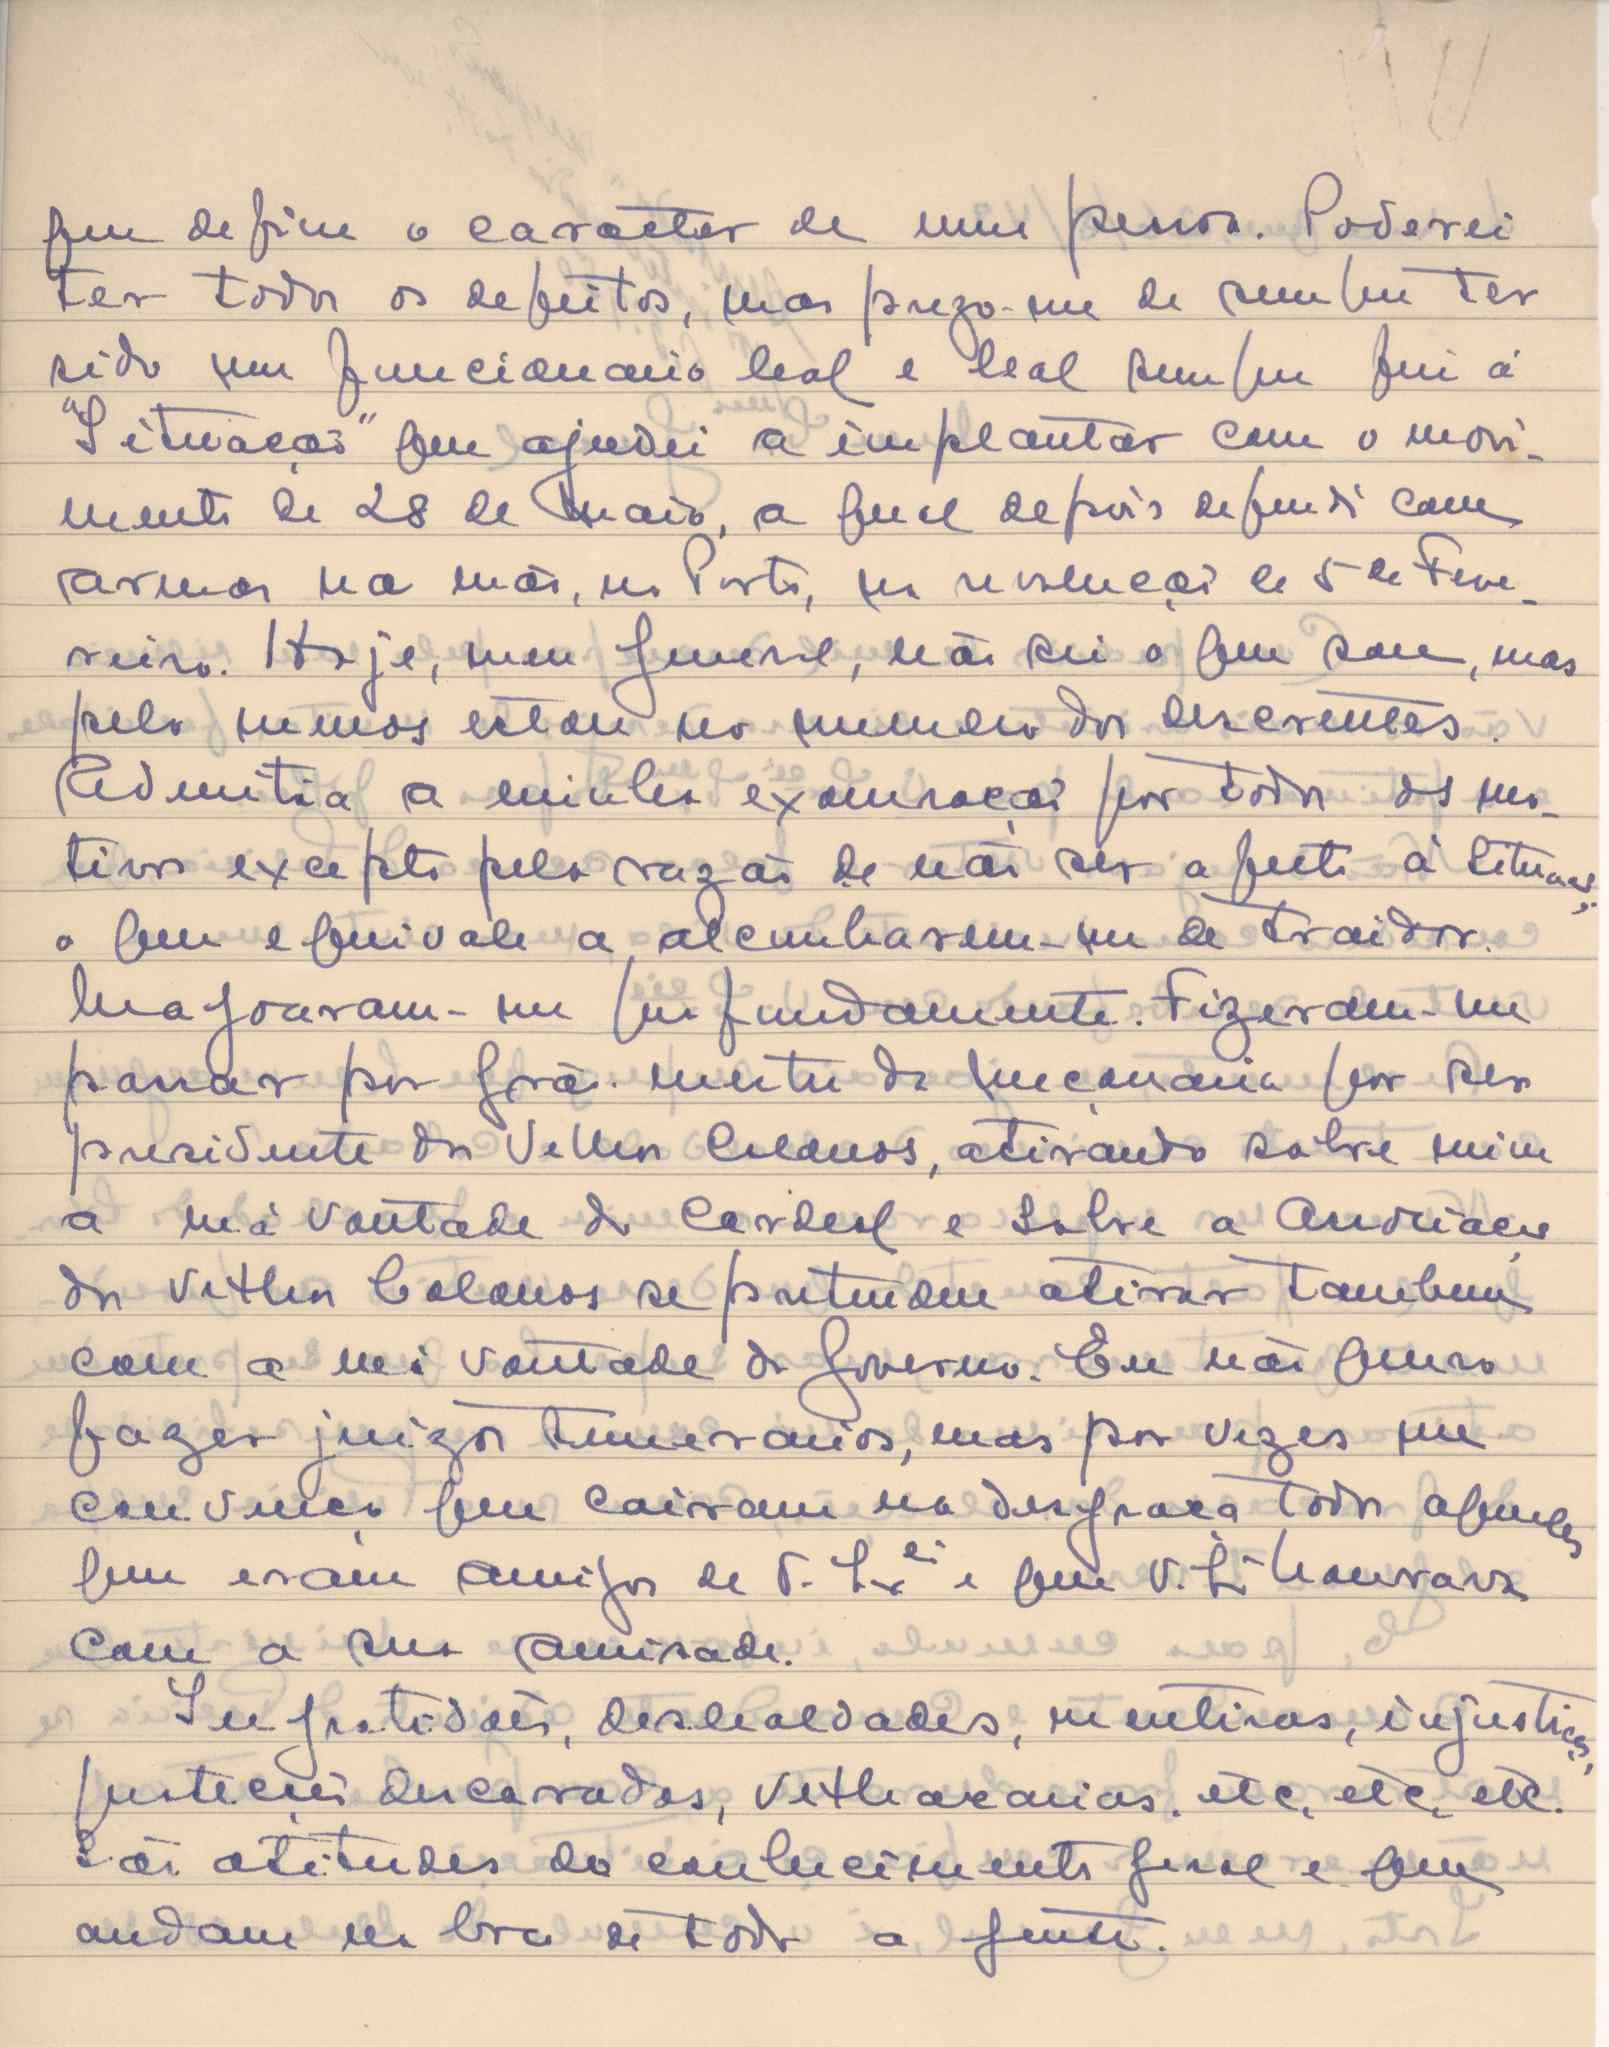 que define o caracter de uma pessoa. Poderei
ter todos os defeitos, mas prezo-me de sempre ter
sido um funcionario leal e leal sempre fui á
"Situação" que ajudei a implantar com o movi-
mento de 28 de Maio, a qual depois defendi com
armas na mão, no Porto, na revolução de 5 de Feve-
reiro. Hoje, meu General, não sei o que sou, mas
pelo menos estou no numero dos descrentes.
Admitia a minha exoneração por todos os mo-
tivos excepto pela razão de não ser afecto á Situação
o que equivale a alcunharem-me de traidor.
Magoaram-me profundamente. Fizeram-me
passar por Grão-mestre da maçonaria por ser
presidente dos Velhos Colonos, atirando sobre mim
a má vontade do Cardeal e sobre a Associação
dos Velhos Colonos se pretendem atirar tambem
com a má vontade do Governo. Eu não quero
fazer juizos temerarios, mas por vezes me
convenço que cairam na desgraça todos aqueles
que eram amigos de V. Ex.ci e que V. Ex. honrava
com a sua amisade.
Ingratidões, deslealdades, mentiras, injustiças,
protecções descaradas, velhacarias. etc. etc. etc.
São atitudes do conhecimento geral e que
andam na boca de toda a gente.